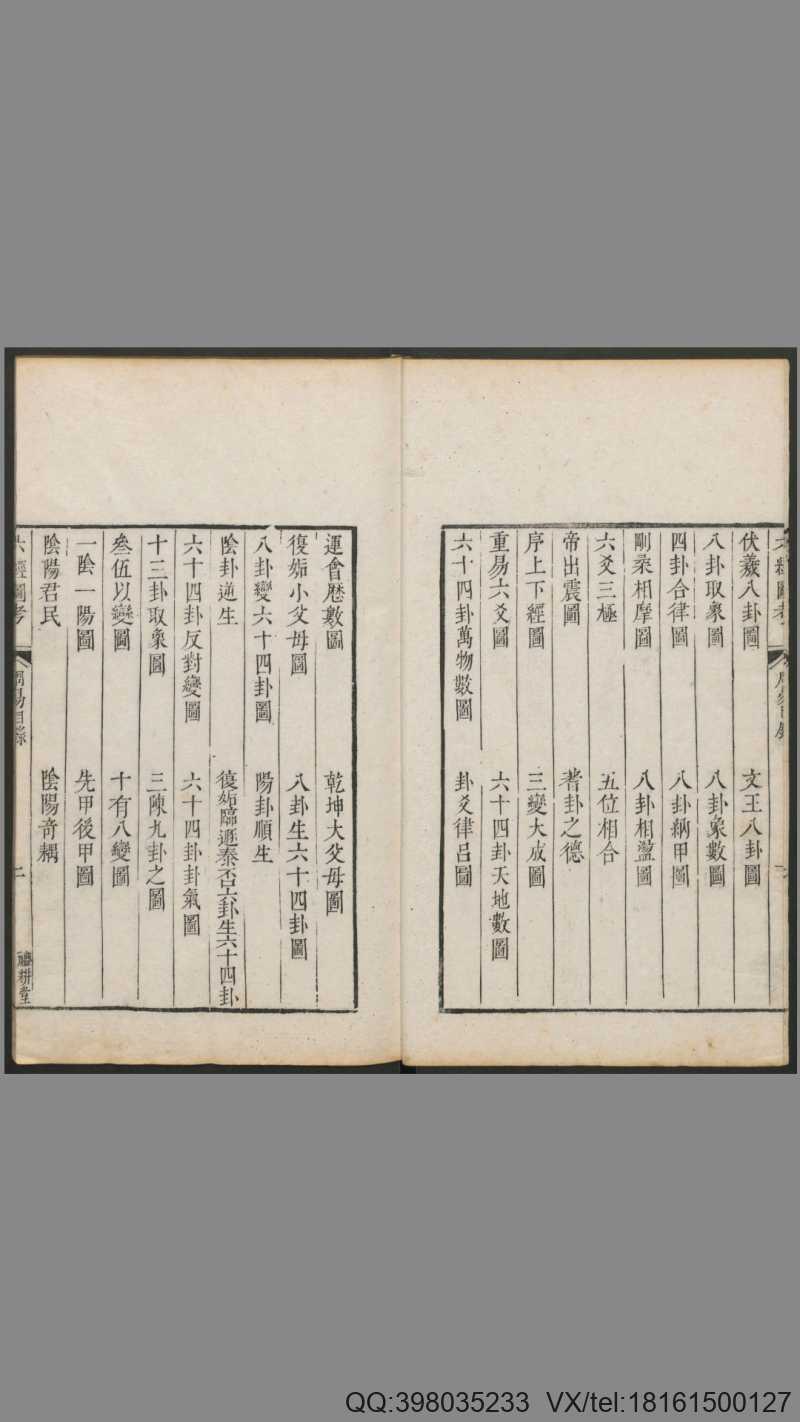 伏羲八卦圖　文王八卦圖
八卦取象圖　八卦象數圖
四卦合律圖　八卦納甲圖
剛柔相摩圖　八卦相盪圖
六爻三極　五位相合
帝出震圖　蓍卦之德
序上下經圖　三變大成圖
重易六爻圖　六十四卦天地數圖
六十四卦萬物數圖　卦爻律呂圖
運會歷數圖　乾坤大父母圖
復姤小父母圖　八卦生六十四卦圖
八卦變六十四卦圖　陽卦順生
陰卦逆生　復姤臨遯泰否六卦生六十四卦
六十四卦反對變圖　六十四卦卦氣圖
十三卦取象圖　三陳九卦之圖
叅伍以變圖　十有八變圖
一陰一陽圖　先甲後甲圖
陰陽君民　陰陽奇耦
六經圖考　周易目錄　二　禮耕堂
QQ:398035233 VX/tel:18161500127